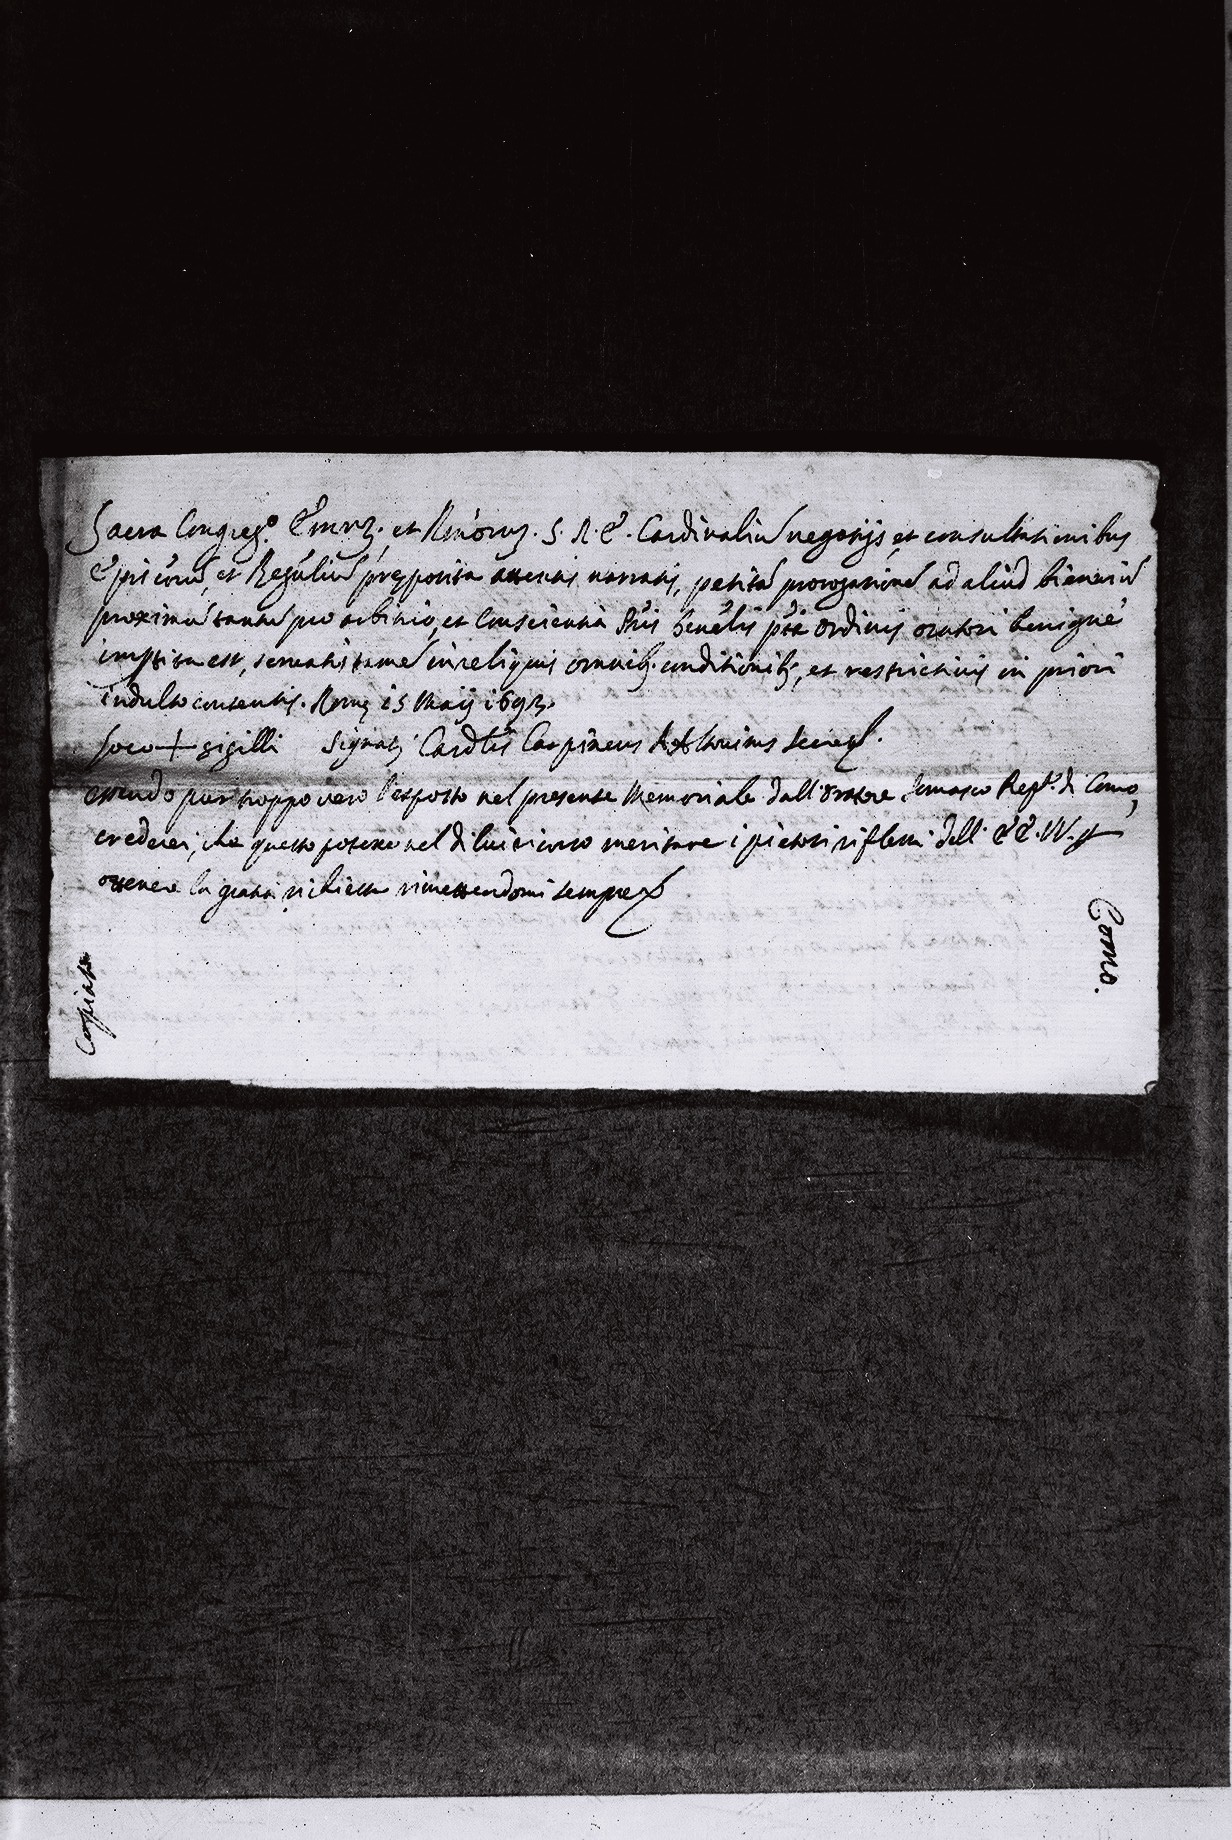 Sacra Congreg.º Em̃oꝝ. et Rm̃oruꝫ. S. R. E. Cardinaliũ negotijs, et consultationibus
Ep̃icorũ, et Regul̃iũ præposita attentis narratis, petitã prorogationẽ ad aliud bienniũ
proximũ tantũ pro arbitrio, et Conscientia Pr̃is Geñelis p̃ti Ordinis oratori benignè
imp̃tita est, servatis tamẽ in reliquis omnib. conditionib, et restrictivis in priori
indulto contentis. Romę 15 Maij 1692.
loco + sigilli Signat. Card̃lis Carpineus
essendo pur troppo vero l'esposto nel presente Memoriale dall'oratore di Como,
crederei, che questo potesse nel di lui ricorso meritare i pietosi riflessi dell' EE. VV. p
ottenere la gratia richiesta rimettendomi sempre
Como.
Copiata